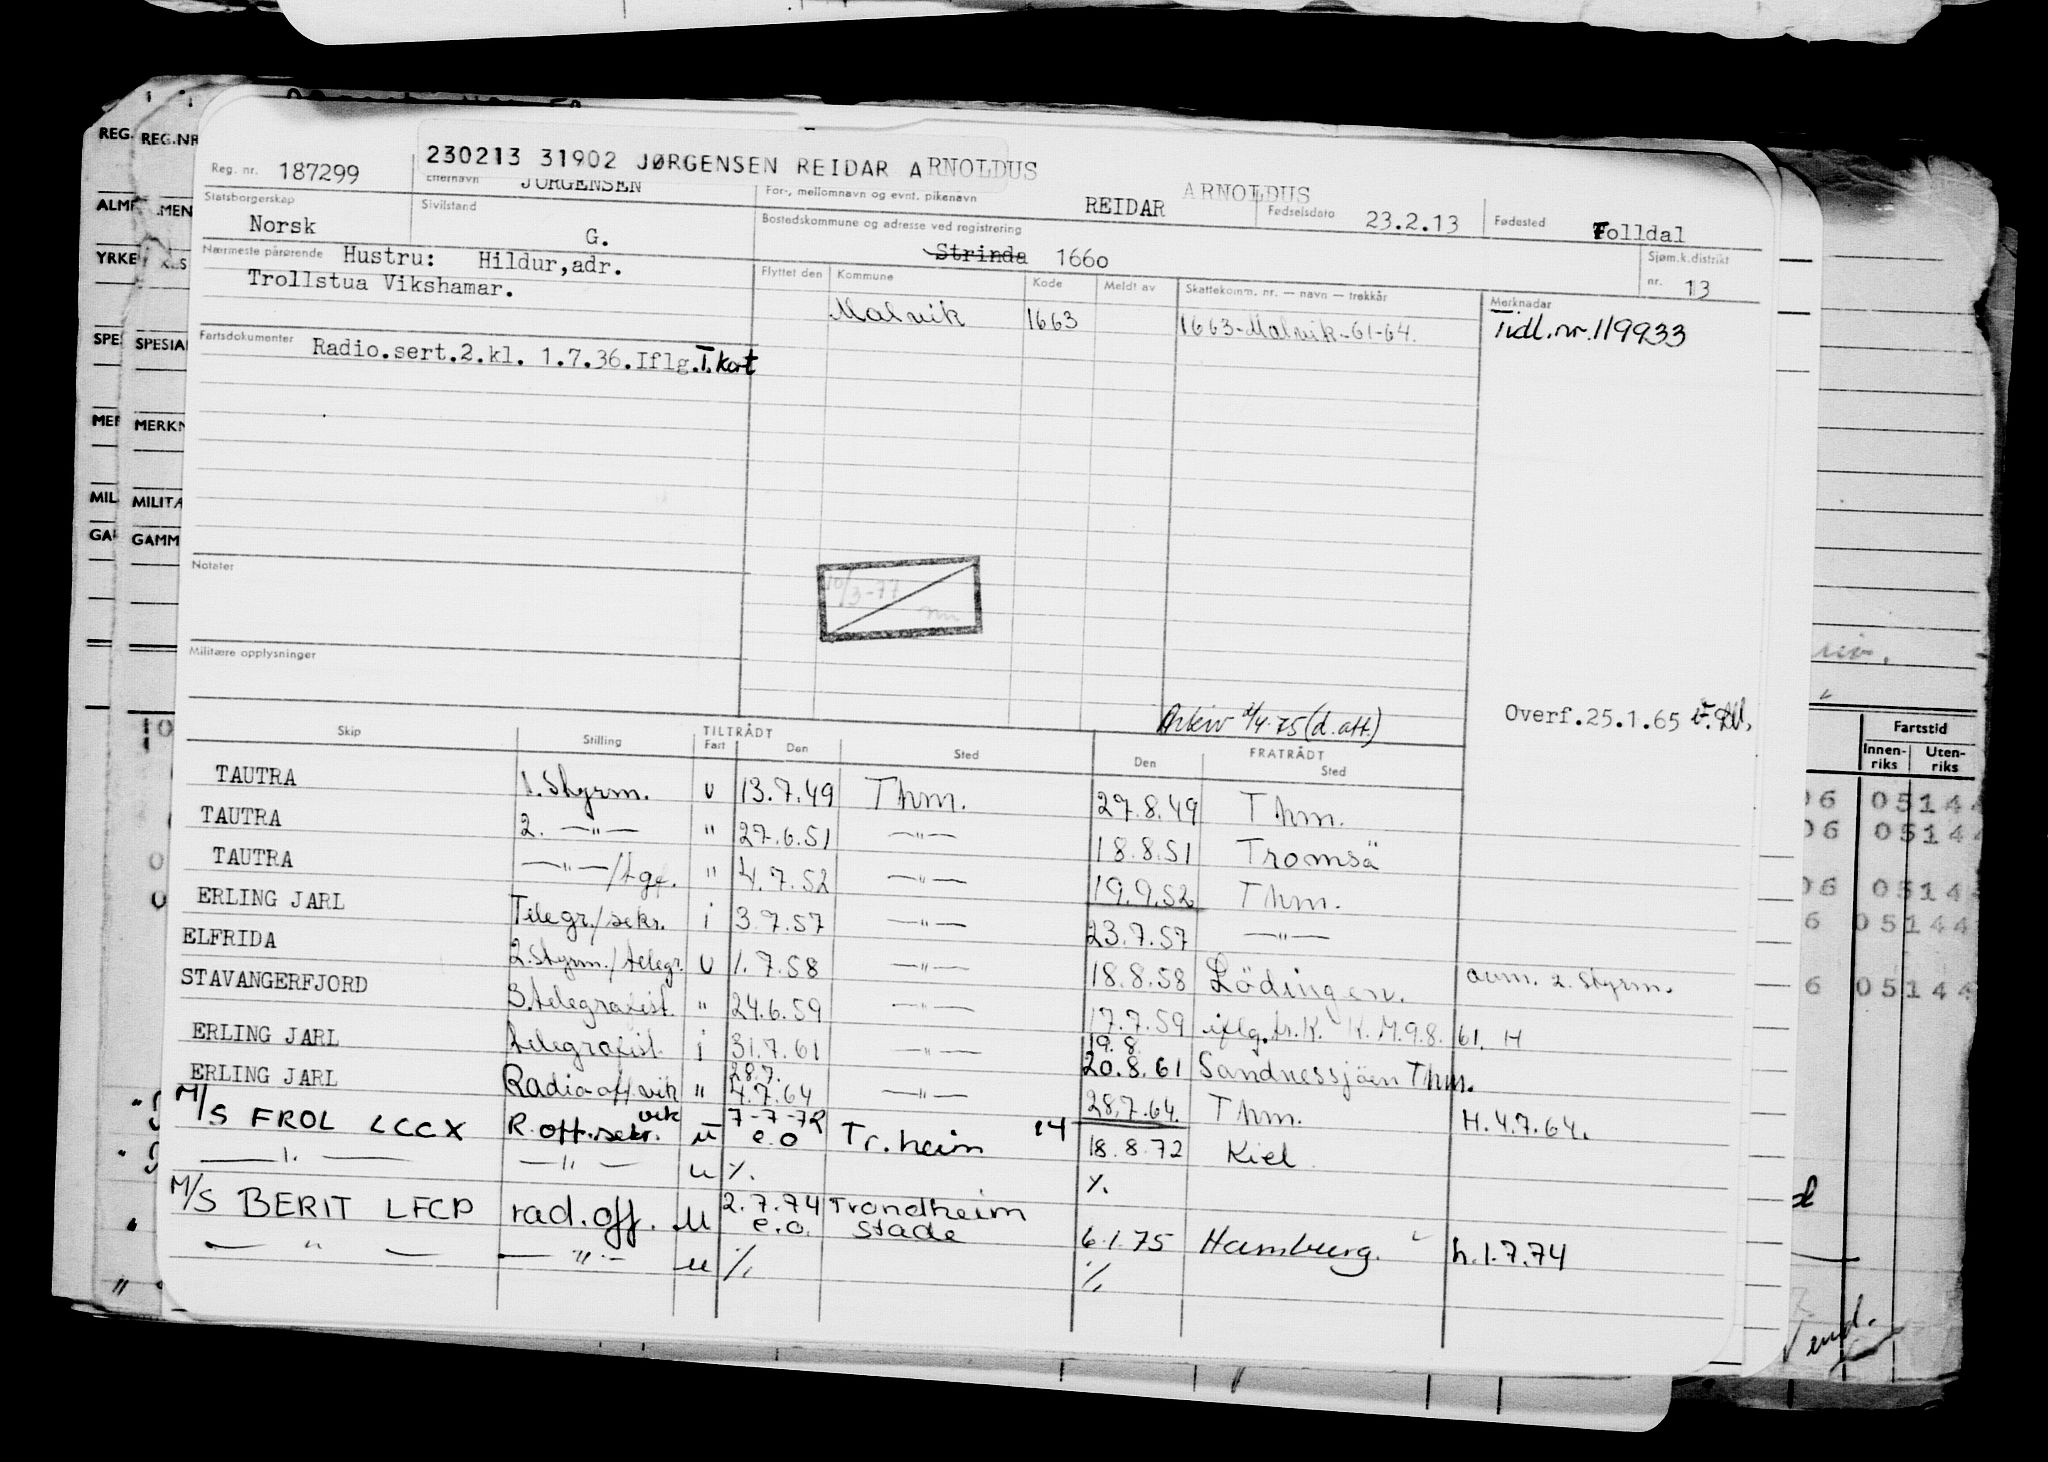 230213 31902 JØRGENSEN REIDAR ARNOLDUS
Reg. nr. 187299
Etternavn JØRGENSEN
For-, mellomnavn og evnt. pikenavn REIDAR ARNOLDUS
Fødselsdato 23.2.13
Fødested Folldal
Statsborgerskap Norsk
Sivilstand G.
Bostedskommune og adresse ved registrering
Strinda 1660
Sjøm.k.distrikt nr. 13
Nærmeste pårørende Hustru: Hildur, adr.
Trollstua Vikshamar.
Flyttet den Kommune Kode Meldt av Skattekomm. nr. — navn — trekkår Merknader
Malvik 1663 1663-Malvik-61-64. Tidl.nr.119933
Fartsdokumenter Radio.sert.2.kl. 1.7.36.Iflg.I.kort
Notater
10/3-77
Militære opplysninger
Arkiv 2/4.75 (d.att.)
Overf.25.1.65
Skip Stilling TILTRÅDT Fart Den Sted FRATRÅDT Den Sted
TAUTRA 1. Styrm. u 13.7.49 Thm. 27.8.49 Thm.
TAUTRA 2. —"— " 27.6.51 —"— 18.8.51 Tromsä
TAUTRA —"—/tgf. " 4.7.52 —"— 19.9.52 Thm.
ERLING JARL Telegr./sekr. i 3.7.57 —"— 23.7.57 —"—
ELFRIDA 2.Styrm./telegr. u 1.7.58 —"— 18.8.58 Lödingen. avm. 2. styrm.
STAVANGERFJORD 3.telegrafist " 24.6.59 —"— 17.7.59 iflg.tr.K. K.M.9.8.61. H
ERLING JARL telegrafist i 31.7.61 —"— 19.8. 20.8.61 Sandnessjöen Thm.
ERLING JARL Radio off.vik " 28.7. 4.7.64 —"— 28.7.64. Thm. H.4.7.64.
M/S FROL LCCX R.off.sekr. vik u 7-7-72 e.o Tr.heim 14 18.8.72 Kiel
—"— —"— u %. %.
M/S BERIT LFCP rad.off. u 2.7.74 e.o. Trondheim Stade 6.1.75 Hamburg. h.1.7.74
—"— —"— u %. %.
REG. REG.NR
YRKE
SPESIA
MERKN
MILITÆ
GAMM
Fartstid
Innen-riks Uten-riks
06 05144
06 05144
06 05144
6 05144
6 05144
Vend.